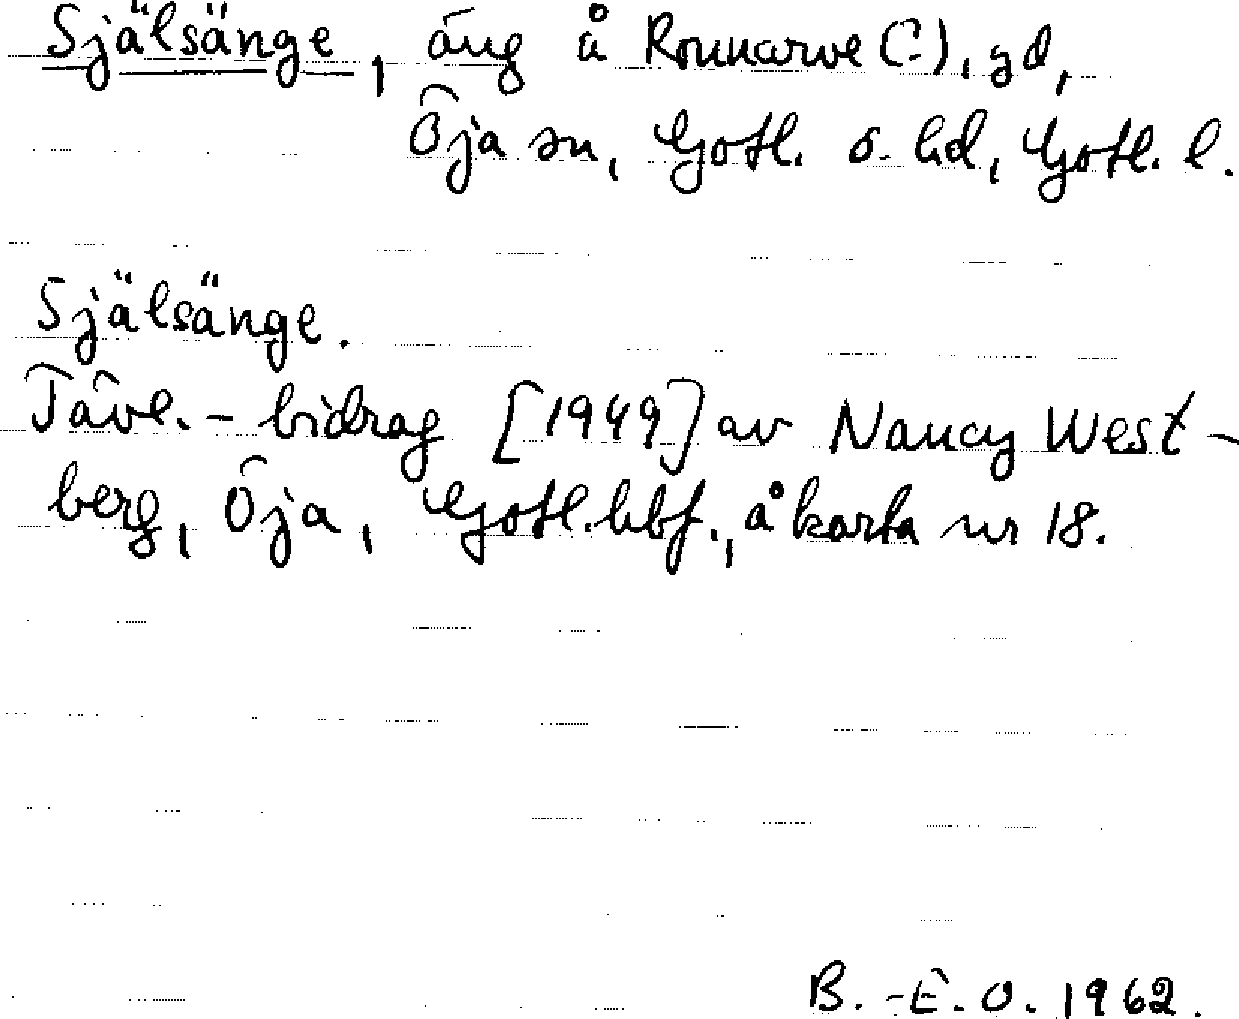 Själsänge, äng å Ronnarve (?), gd,
Öja sn, Gotl. s. hd, Gotl. l.
Själsänge.
Tävl.-bidrag [1949] av Nancy West-
berg, Öja, Gotl.hbf., å karta nr 18.
B.-E.O. 1962.